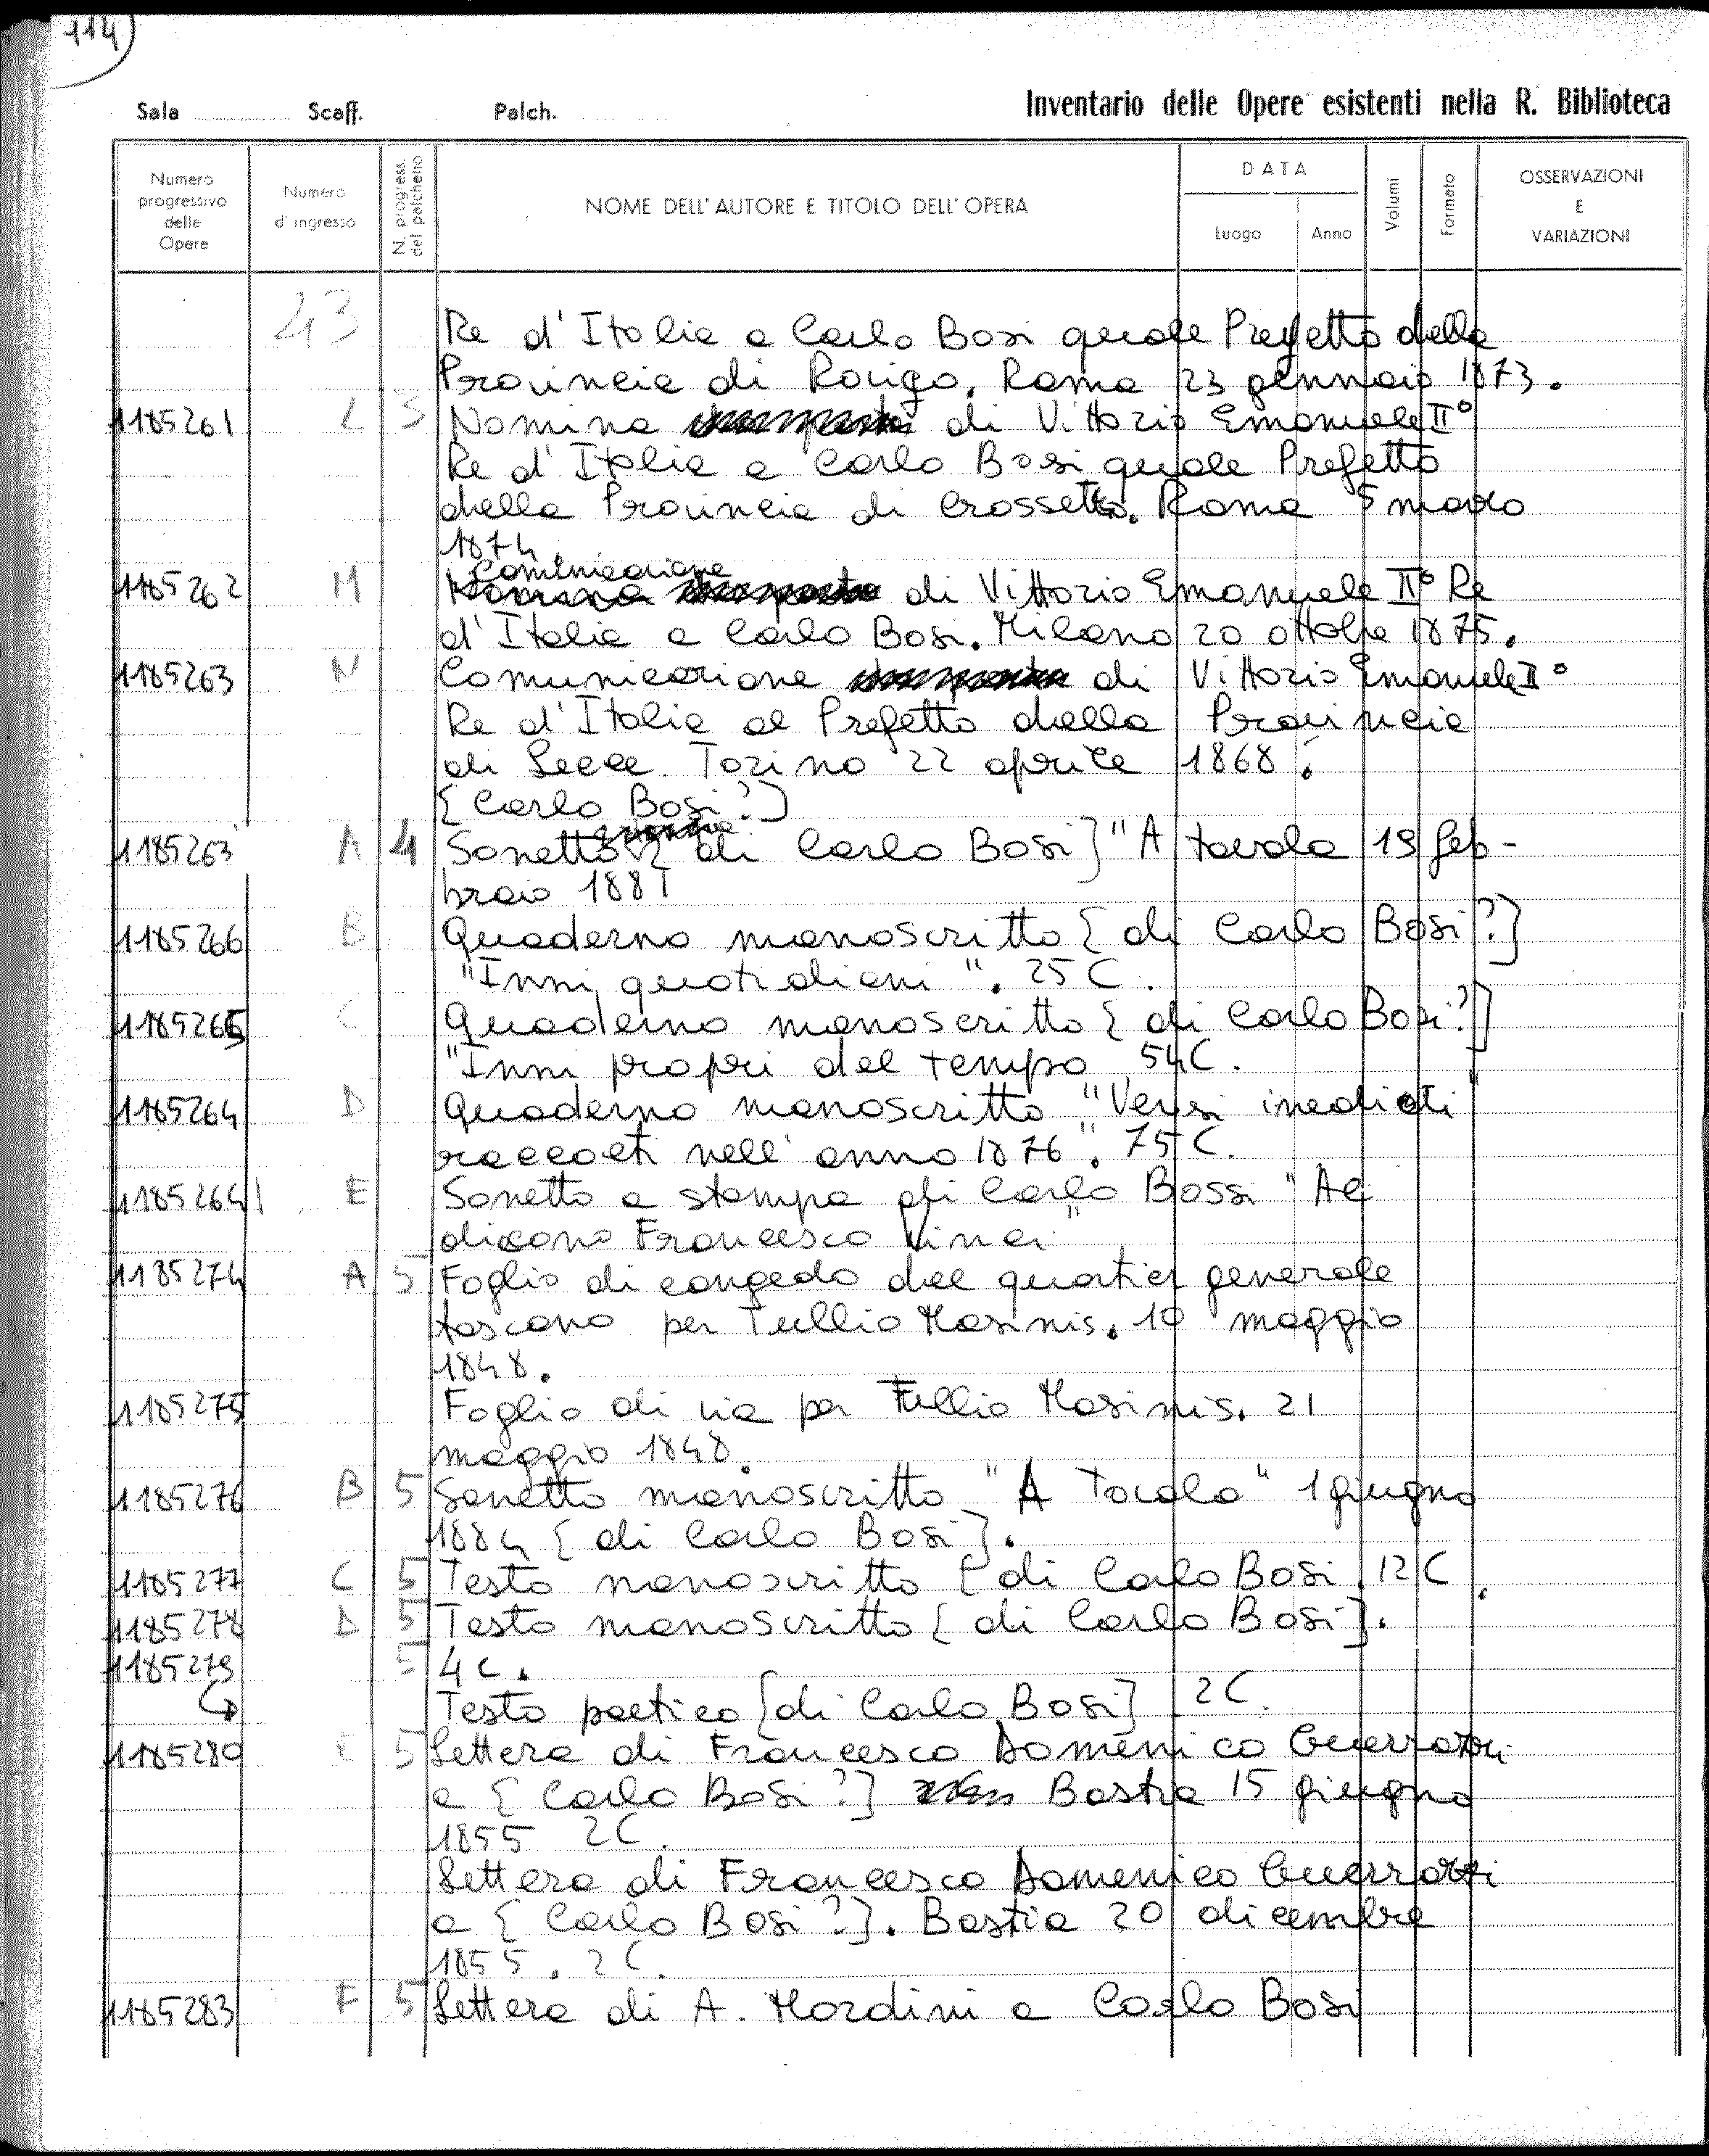 114)
Sala Scaff. Palch. Inventario delle Opere esistenti nella R. Biblioteca
Numero progressivo delle Opere
Numero d'ingresso
N. progress. del palchetto
NOME DELL'AUTORE E TITOLO DELL'OPERA
DATA
Luogo Anno
Volumi
Formato
OSSERVAZIONI E VARIAZIONI
43 Re d'Italia a Carlo Bosi quale Prefetto della
Provincia di Rovigo. Roma 23 gennaio 1873.
1185261 L 3 Nomina di Vittorio Emanuele II°
Re d'Italia a Carlo Bosi quale Prefetto
della Provincia di Grossetto. Roma 5 marzo
1874.
Comunicazione
1185262 M Nomina di Vittorio Emanuele II° Re
d'Italia a Carlo Bosi. Milano 20 ottobre 1875.
1185263 N Comunicazione di Vittorio Emanuele II°
Re d'Italia al Prefetto della Provincia
di Lecce. Torino 22 aprile 1868.
[Carlo Bosi?]
1185263 A 4 Sonetto [di Carlo Bosi] "A tavola 19 feb-
braio 1881
1185266 B Quaderno manoscritto [di Carlo Bosi?]
"Inni quotidiani". 25 C.
1185265 C Quaderno manoscritto [di Carlo Bosi?]
"Inni propri del tempo 54 C.
1185264 D Quaderno manoscritto "Versi inediti
raccolti nell'anno 1876". 75 C.
1185264/1 E Sonetto a stampa di Carlo Bossi "Al
diacono Francesco Vinci"
1185274 A 5 Foglio di congedo del quartier generale
toscano per Tullio Masinis. 10 maggio
1848.
1185275 Foglio di via per Tullio Masinis. 21
maggio 1848.
1185276 B 5 Sonetto manoscritto "A Tavola" 1 giugno
1884 [di Carlo Bosi].
1185277 C 5 Testo manoscritto [di Carlo Bosi. 12 C.
1185278 D 5 Testo manoscritto [di Carlo Bosi].
1185279 5 4 c.
Testo poetico [di Carlo Bosi] 2 C.
1185280 E 5 Lettera di Francesco Domenico Guerrazzi
a [Carlo Bosi?] Bastia 15 giugno
1855 2 C.
Lettera di Francesco Domenico Guerrazzi
a [Carlo Bosi?]. Bastia 20 dicembre
1855. 2 C.
1185283 F 5 Lettera di A. Mordini a Carlo Bosi